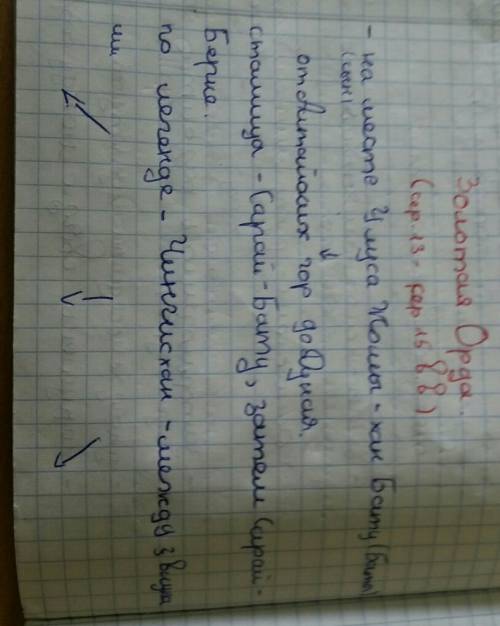 Золотая Орда.
(сер. 13 - сер 15 в в)
- на месте Улуса Жошы - хан Бату (Баты)
(сын)
от Алтайских гор до Дуная.
столица - Сарай-Бату, затем Сарай-
Берке.
по легенде - Чингисхан - между 3
ми